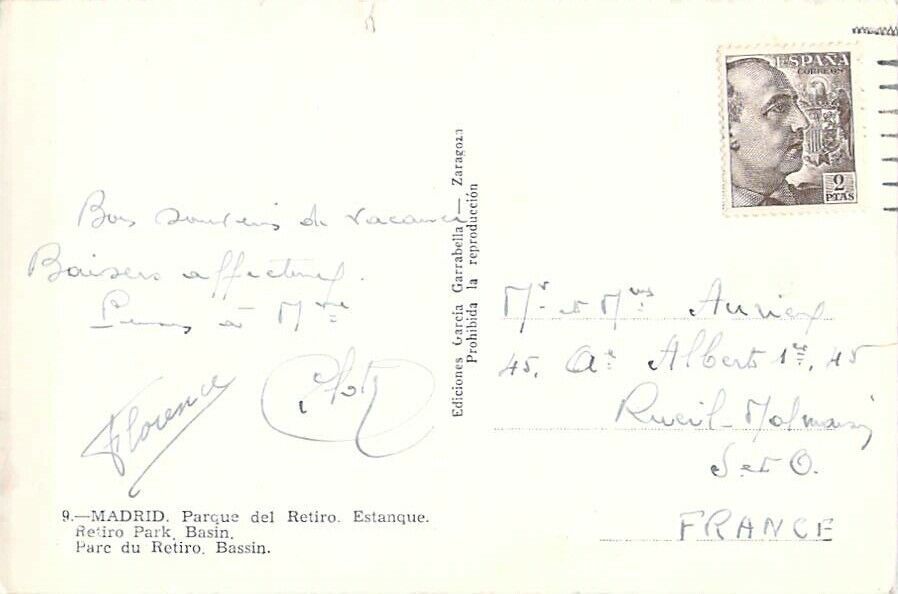 Bons souvenirs de vacances
Baisers affectueux.
à Mme
Florence
9.—MADRID. Parque del Retiro. Estanque.
Retiro Park. Basin.
Parc du Retiro. Bassin.
Ediciones García Garrabella — Zaragoza
Prohibida la reproducción
ESPAÑA
CORREOS
2
PTAS
Mr et Mme
45, Av Albert 1er, 45
Rueil-Malmaison
S et O.
FRANCE